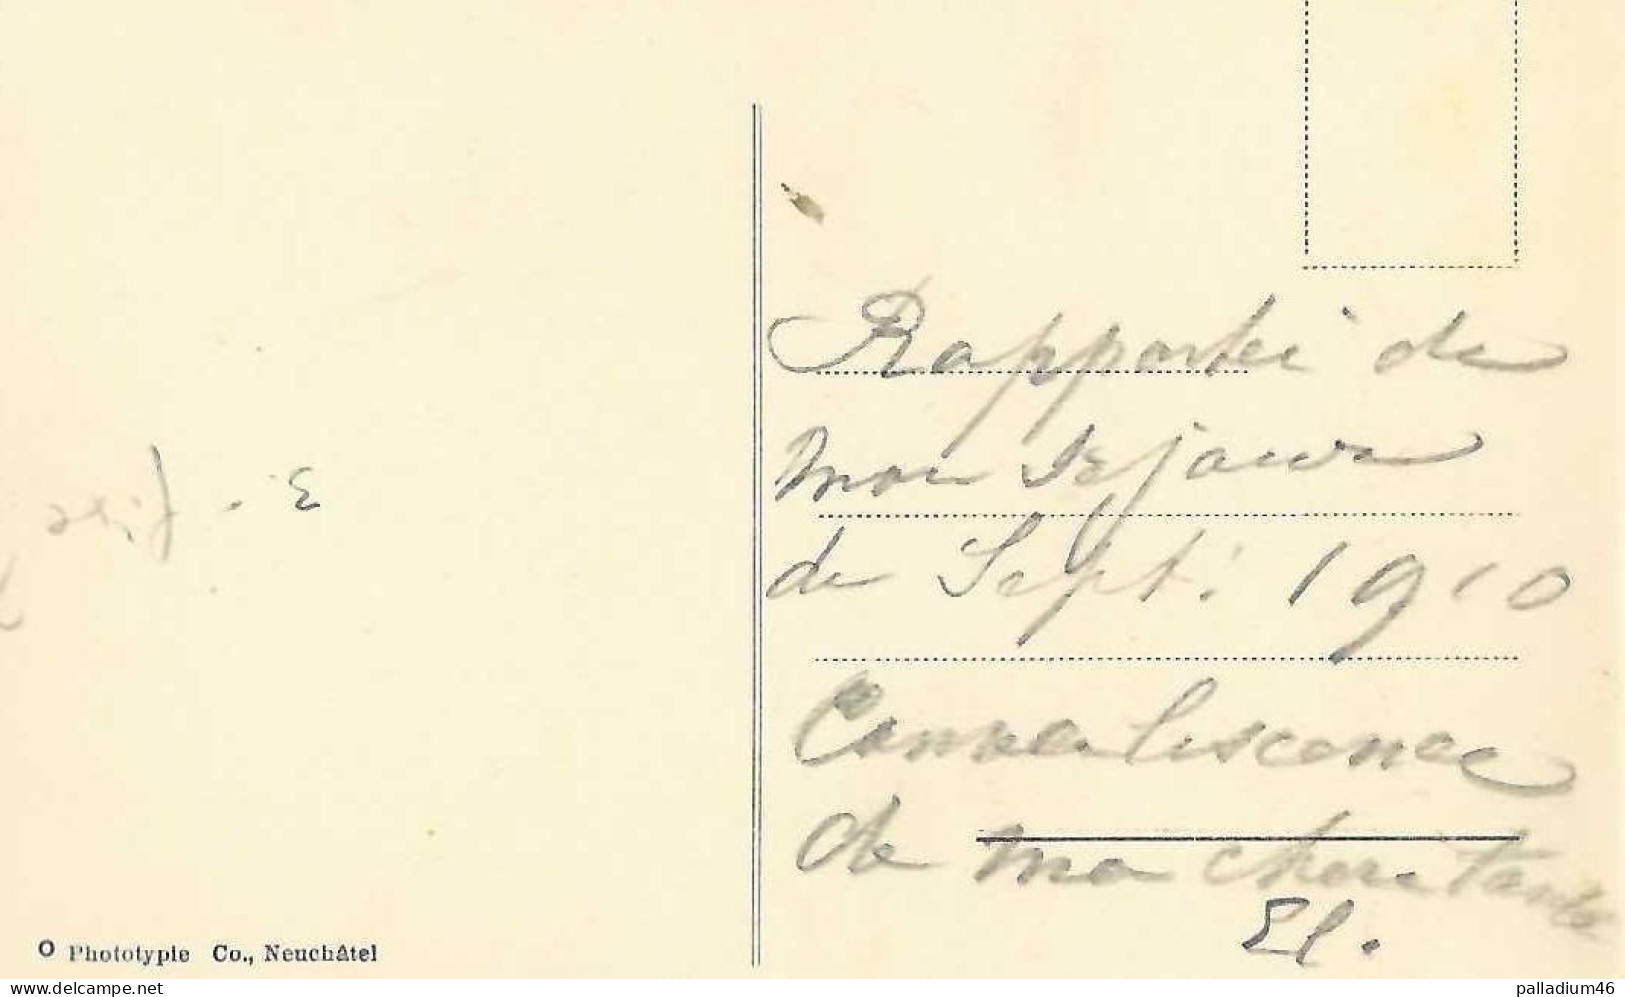 Rapporté de
mon séjour
de Sept. 1910
Convalescence
de ma chere tante
El.
O Phototypie Co., Neuchâtel
delcampe.net
palladium46